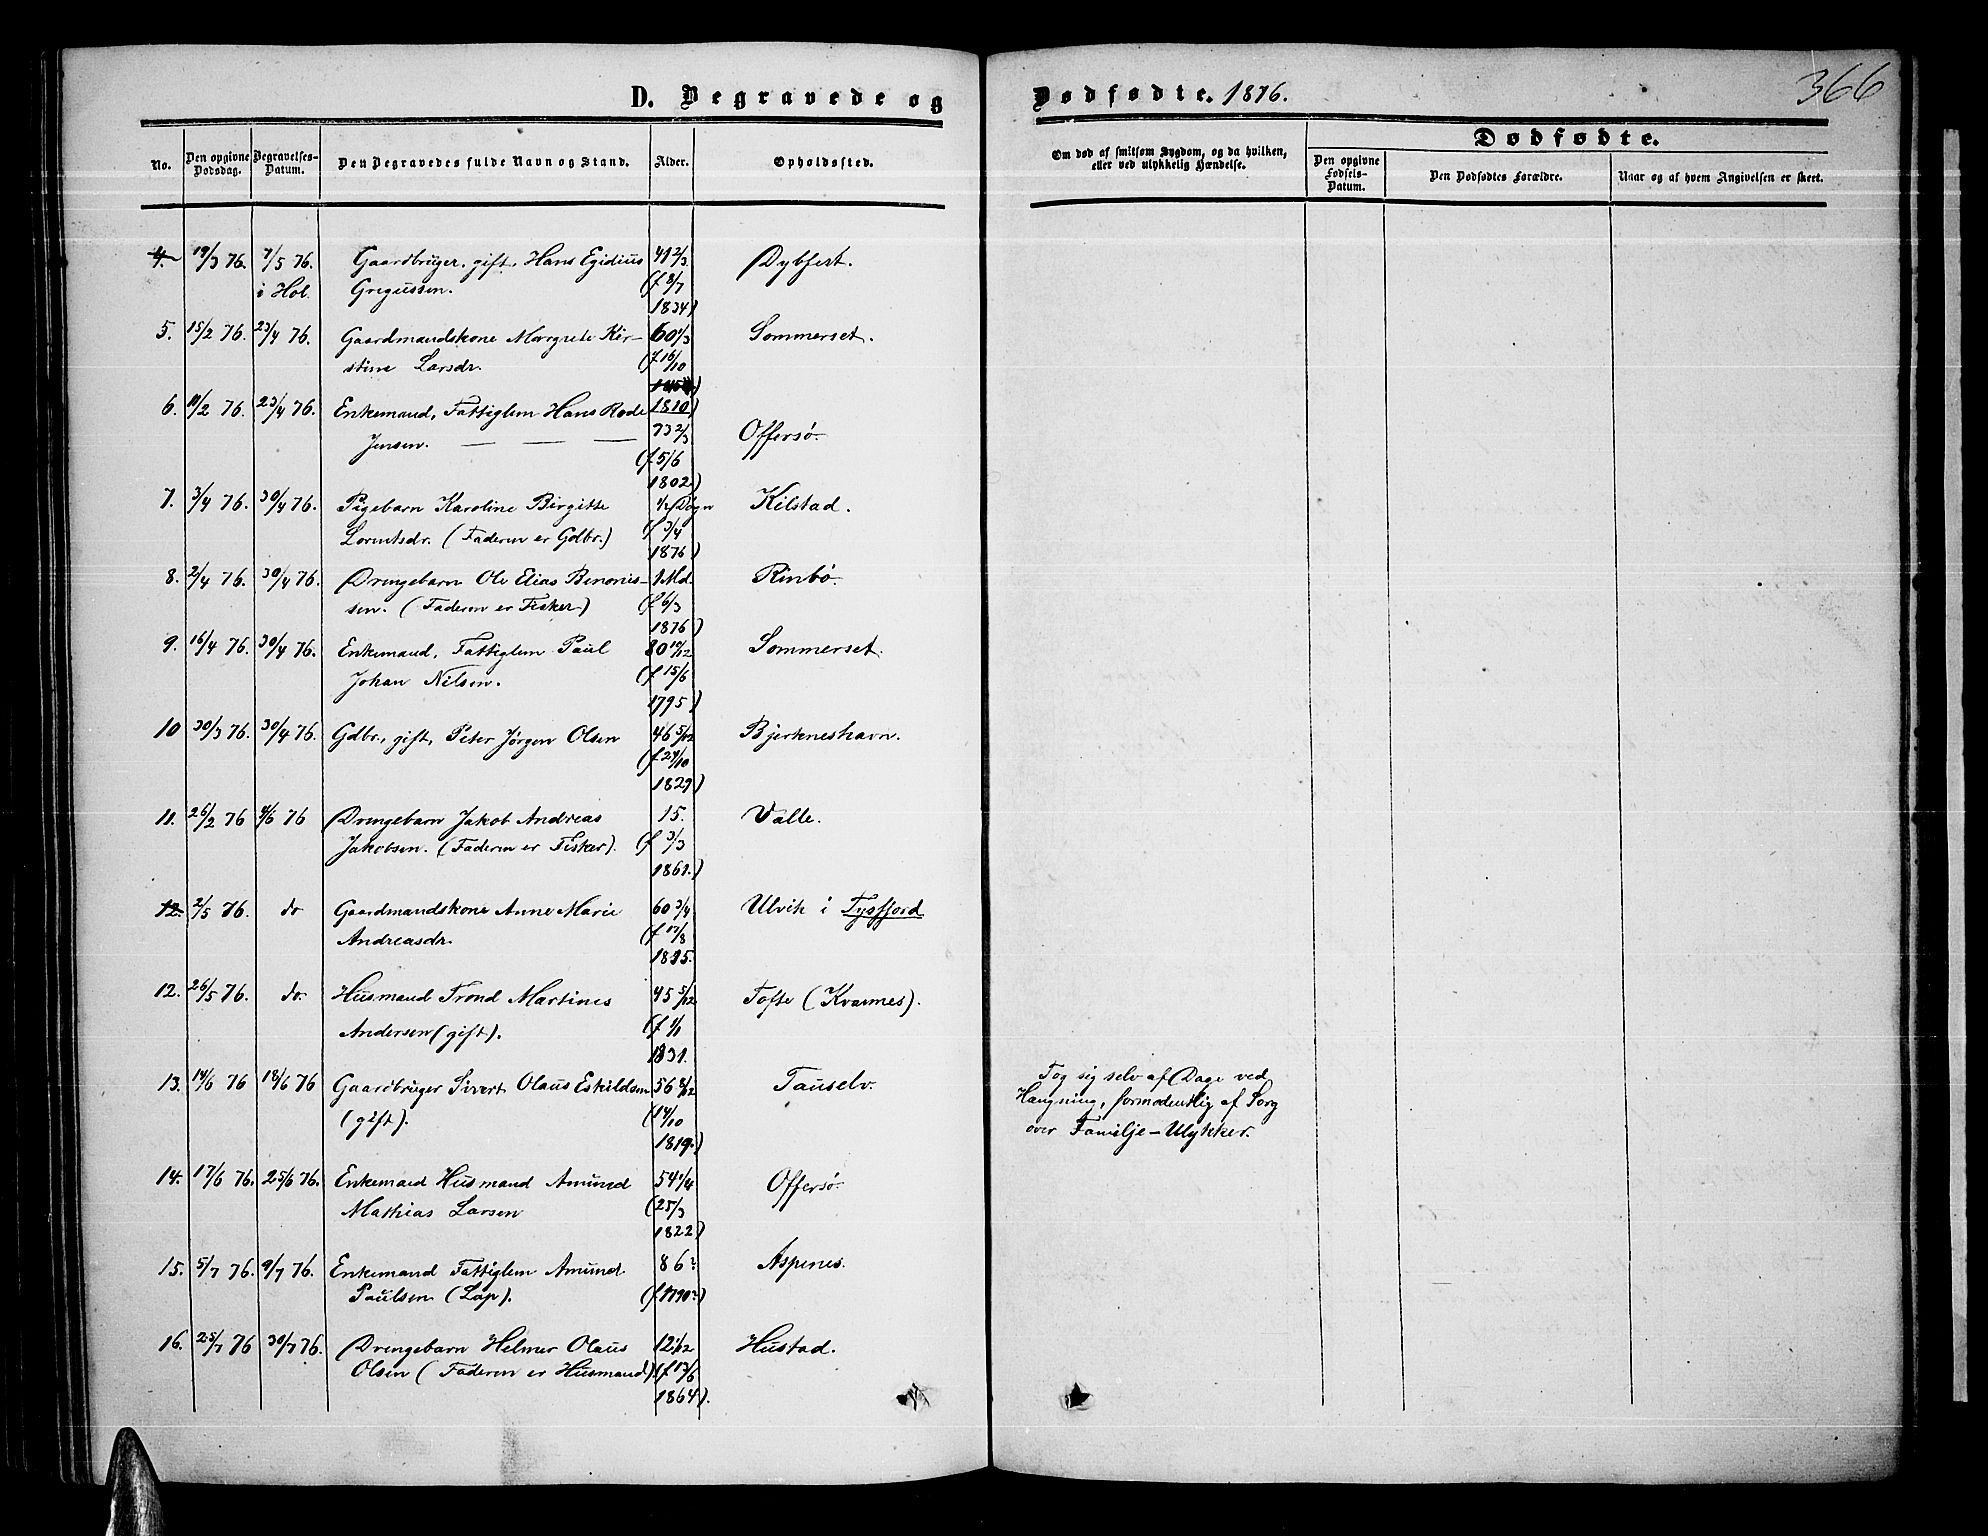 D. Begravede og Dødfødte. 1876. 366
No. Den opgivne Dødsdag. Begravelses-Datum. Den Begravedes fulde Navn og Stand. Alder. Opholdssted. Om død af smitsom Sygdom, og da hvilken, eller ved ulykkelig Hændelse. Dødfødte. Den opgivne Fødsels-Datum. Den Dødfødtes Forældre. Naar og af hvem Angivelsen er skeet.
4. 19/3 76. 7/5 76. Gaardbruger, gift, Hans Egidius 41 2/3 Dybfest.
i Hol. Gregussen. (f 8/7
1834)
5. 15/2 76. 23/4 76. Gaardmandskone Margrete Kir- 60 1/3 Sommerset.
stine Larsdr. (f 16/10
6. 11/2 76. 23/4 76. Enkemand, Fattiglem Hans Rode 1810)
Jensen. — — — 73 2/3 Offersø.
(f 5/6
1802)
7. 3/4 76. 30/4 76. Pigebarn Karoline Birgitte 1/2 Døgn Kilstad.
Lorentsdr. (Faderen er Gdbr.) (f 3/4
1876)
8. 2/4 76. 30/4 76. Drengebarn Ole Elias Benonis- 1 Md. Rinbø.
sen. (Faderen er Fisker) (f 6/3
1876)
9. 16/4 76. 30/4 76. Enkemand, Fattiglem Paul 80 10/12 Sommerset.
Johan Nilsen. (f 15/6
1795)
10 30/3 76. 30/4 76. Gdbr., gift, Peter Jørgen Olsen 46 5/12 Bjerkneshavn.
(f 24/10
1829)
11. 26/2 76 4/6 76 Drengebarn Jakob Andreas 15. Valle.
Jakobsen. (Faderen er Fisker). (f 3/3
1861.)
12. 2/5 76. do Gaardmandskone Anne Marie 60 3/4 Ulvik i Tysfjord
Andreasdr. (f 17/8
1815.
12. 26/5 76. do Husmand Trond Martines 45 5/12 Tofte (Kvarnes).
Andersen (gift). (f 1/1
1831.
13. 14/6 76 18/6 76 Gaardbruger Sivert Olaus Eskildsen 56 8/12 Tauselv. Tog sig selv af Dage ved
(gift). (14/10 Hængning, formodentlig af Sorg
1819.) over Familje-Ulykker.
14. 17/6 76. 25/6 76. Enkemand Husmand Amund 54 1/4 Offersø
Mathias Larsen (25/3
1822)
15. 5/7 76. 9/7 76. Enkemand Fattiglem Amund 86? Aspenes.
Paulsen (Lap). (f. 1790?)
16. 25/7 76 30/7 76. Drengebarn Helmer Olaus 12 1/12 Hustad.
Olsen (Faderen er Husmand). (f 13/6
1864).